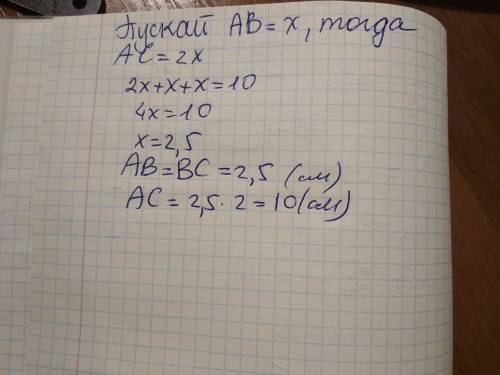 Пускай AB = x, тогда
AC = 2x
2x+x+x=10
4x=10
x=2,5
AB=BC=2,5 (см)
AC = 2,5 · 2 = 10(см)